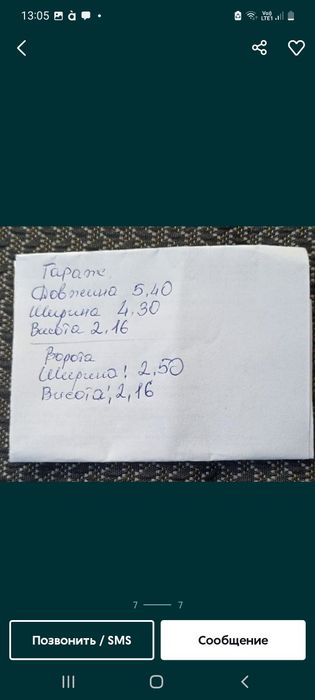 13:05
Гараж
Довжина 5,40
Ширина 4,30
Висота 2,16
Ворота
Ширина! 2,50
Висота! 2,16
7 7
Позвонить / SMS
Сообщение